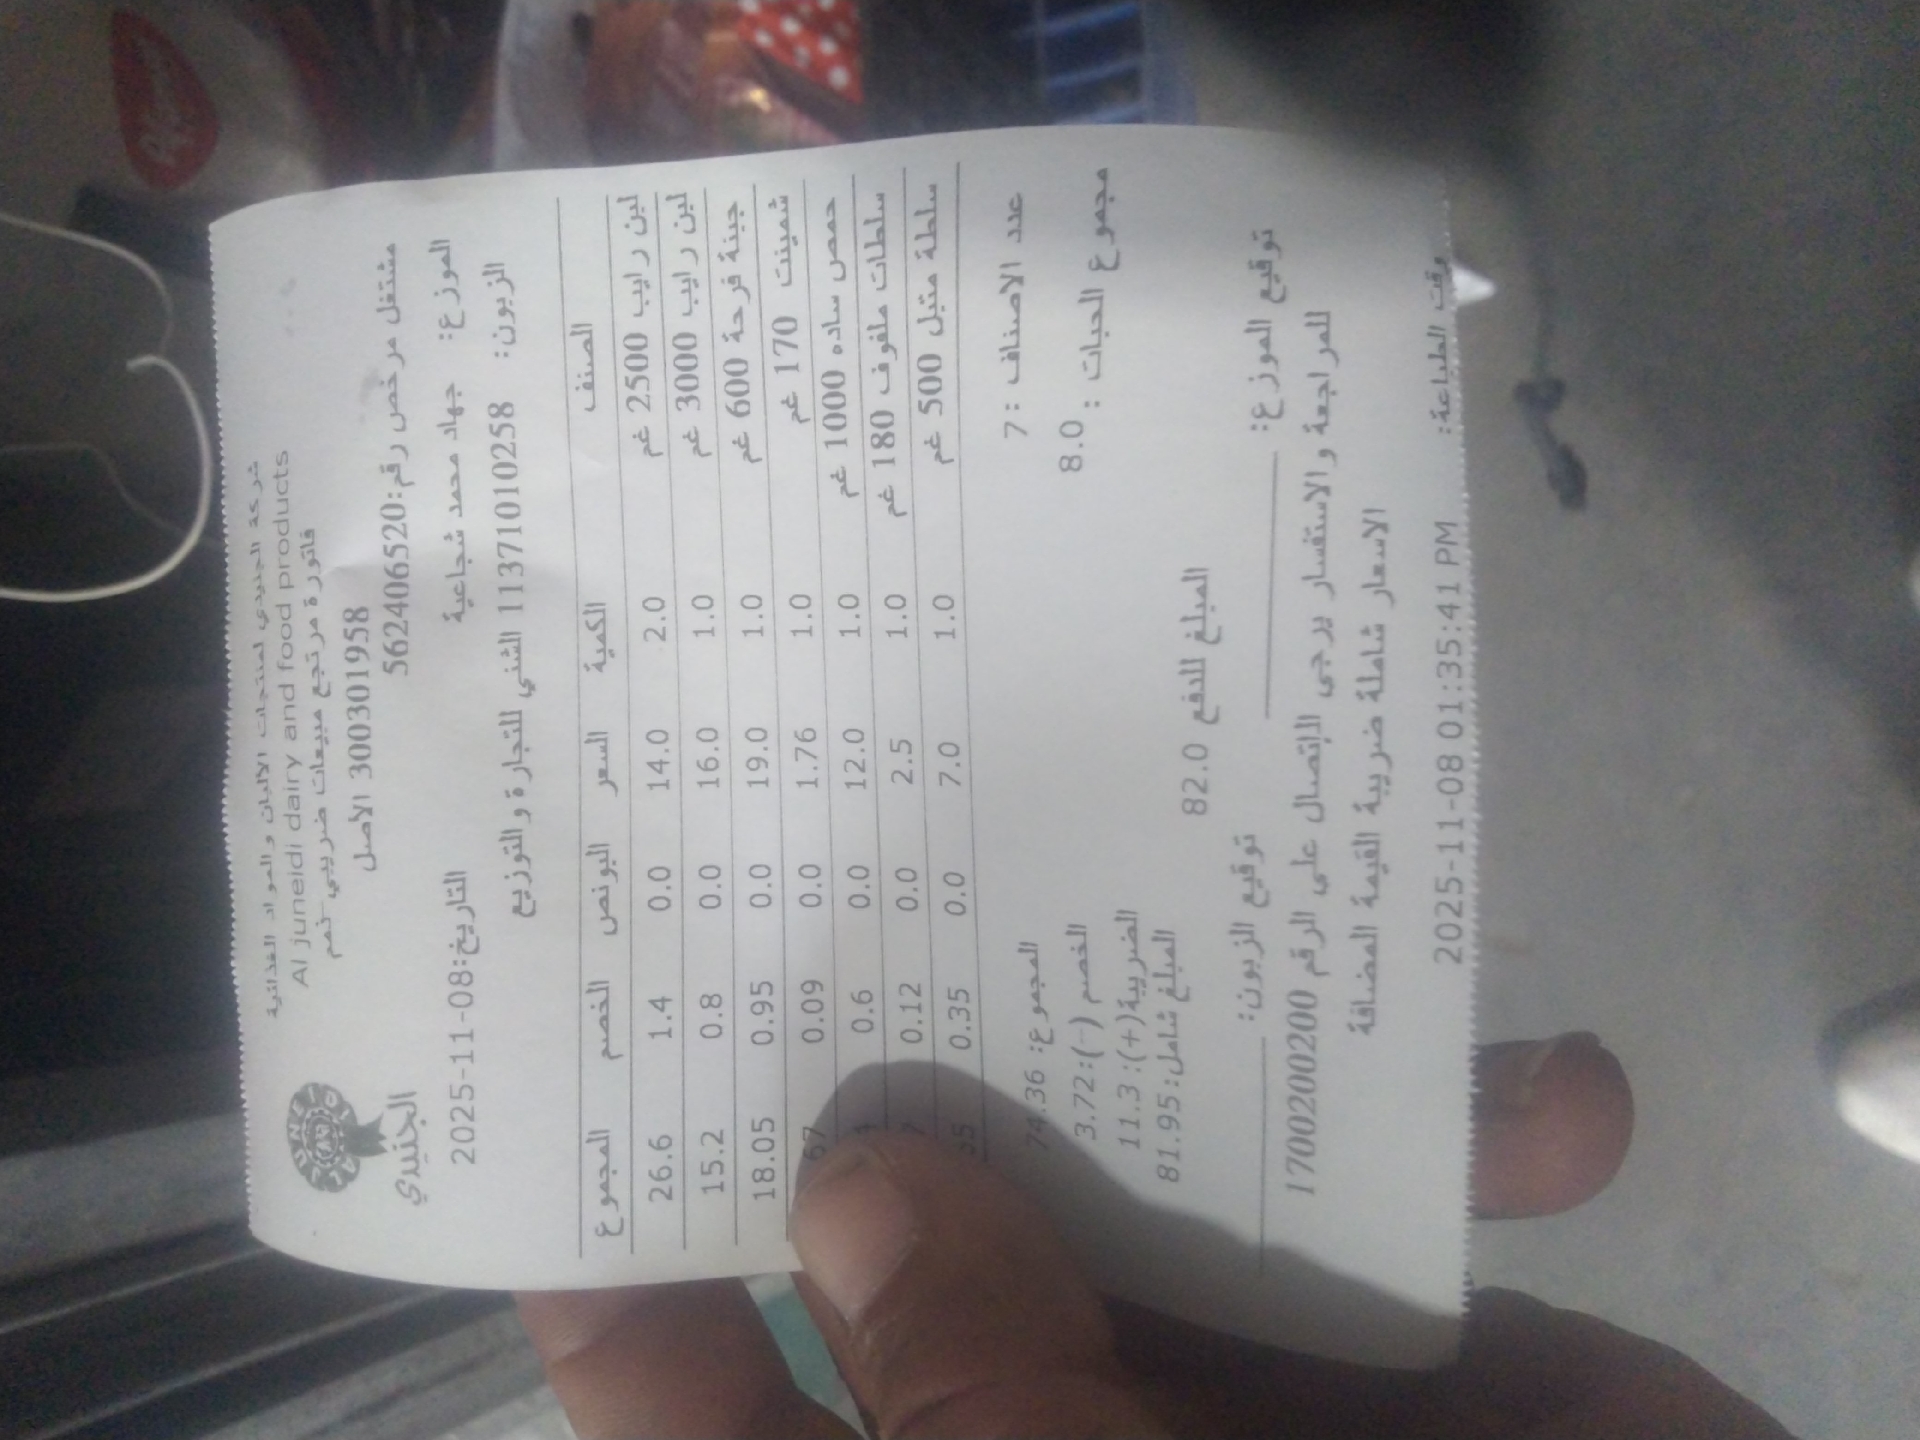 شركة الجنيدي لمنتجات الالبان والمواد الغذائية
Al juneidi dairy and food products
فاتورة مرتجع مبيعات ضريبي-نمم
300301958 الاصل
مشتغل مرخص رقم:562406520
الجنيدي
الموزع: جهاد محمد شجاعية التاريخ:2025-11-08
الزبون: 1137101010258 الشني للتجارة والتوزيع
الصنف الكمية السعر البونص الخصم المجموع
لبن رايب 2500 غم 2.0 14.0 0.0 1.4 26.6
لبن رايب 3000 غم 1.0 16.0 0.0 0.8 15.2
جبنة فرحة 600 غم 1.0 19.0 0.0 0.95 18.05
شمينت 170 غم 1.0 1.76 0.0 0.09
حمص ساده 1000 غم 1.0 12.0 0.0 0.6
سلطات ملفوف 180 غم 1.0 2.5 0.0 0.12
سلطة متبل 500 غم 1.0 7.0 0.0 0.35
عدد الاصناف : 7 المجموع: 74.36
مجموع الحبات : 8.0 الخصم (-):3.72
الضريبة(+): 11.3
المبلغ شامل:81.95
المبلغ للدفع 82.0
توقيع الموزع: توقيع الزبون:
للمراجعة والاستفسار يرجى الإتصال على الرقم 1700200200
الاسعار شاملة ضريبة القيمة المضافة
وقت الطباعة: 2025-11-08 01:35:41 PM